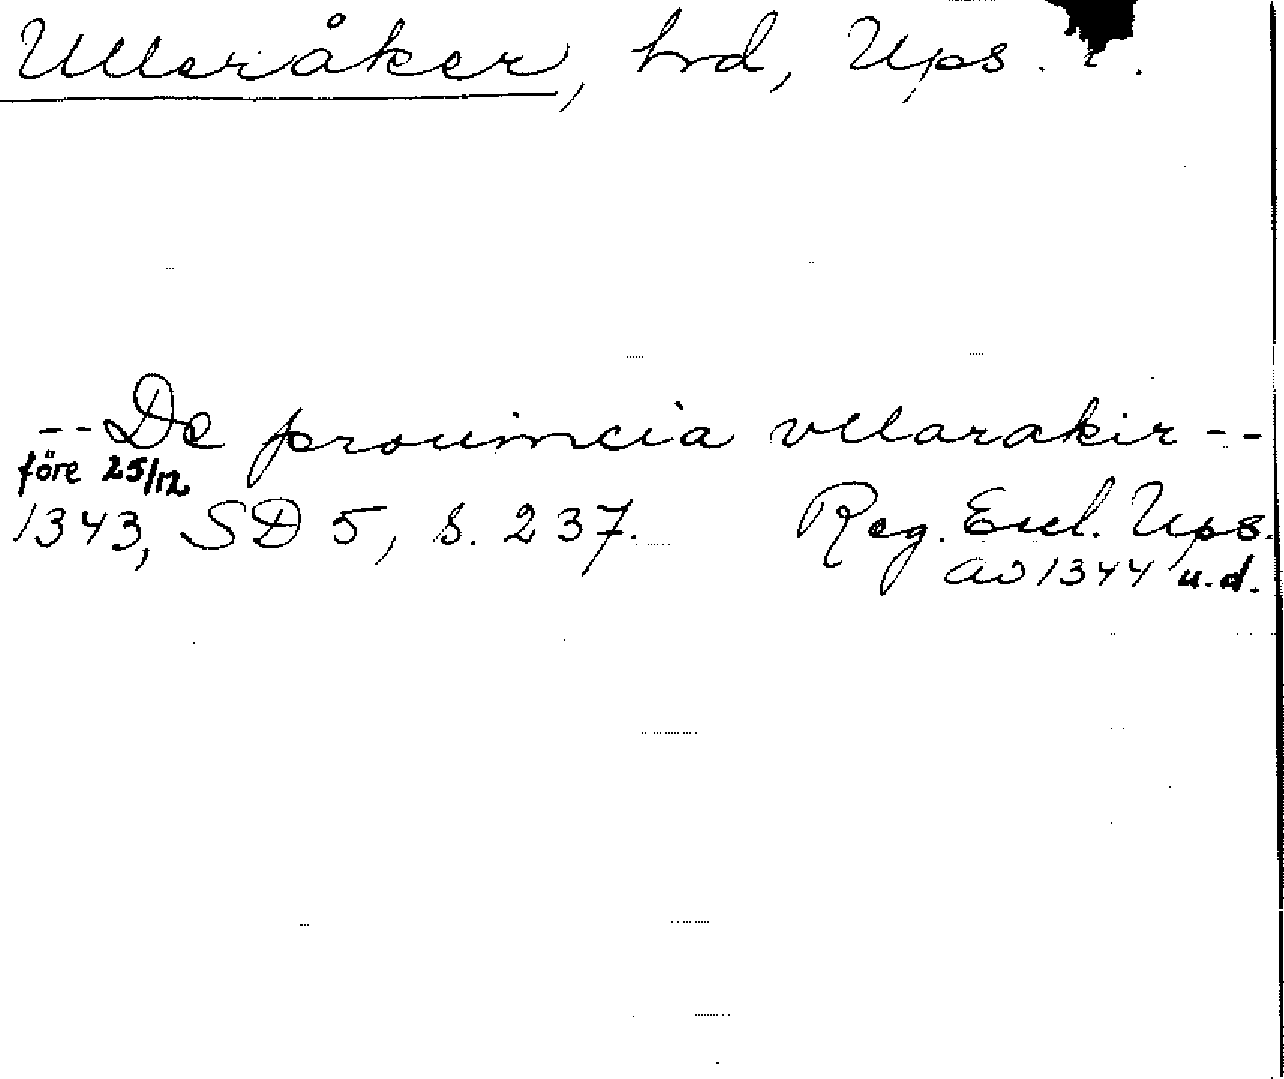 Ulleråker, hrd, Ups. l.
-- De prouincia vllarakir --
före 25/12
1343, SD 5, s. 237. Reg. Eccl. Ups.
av 1344 u.d.